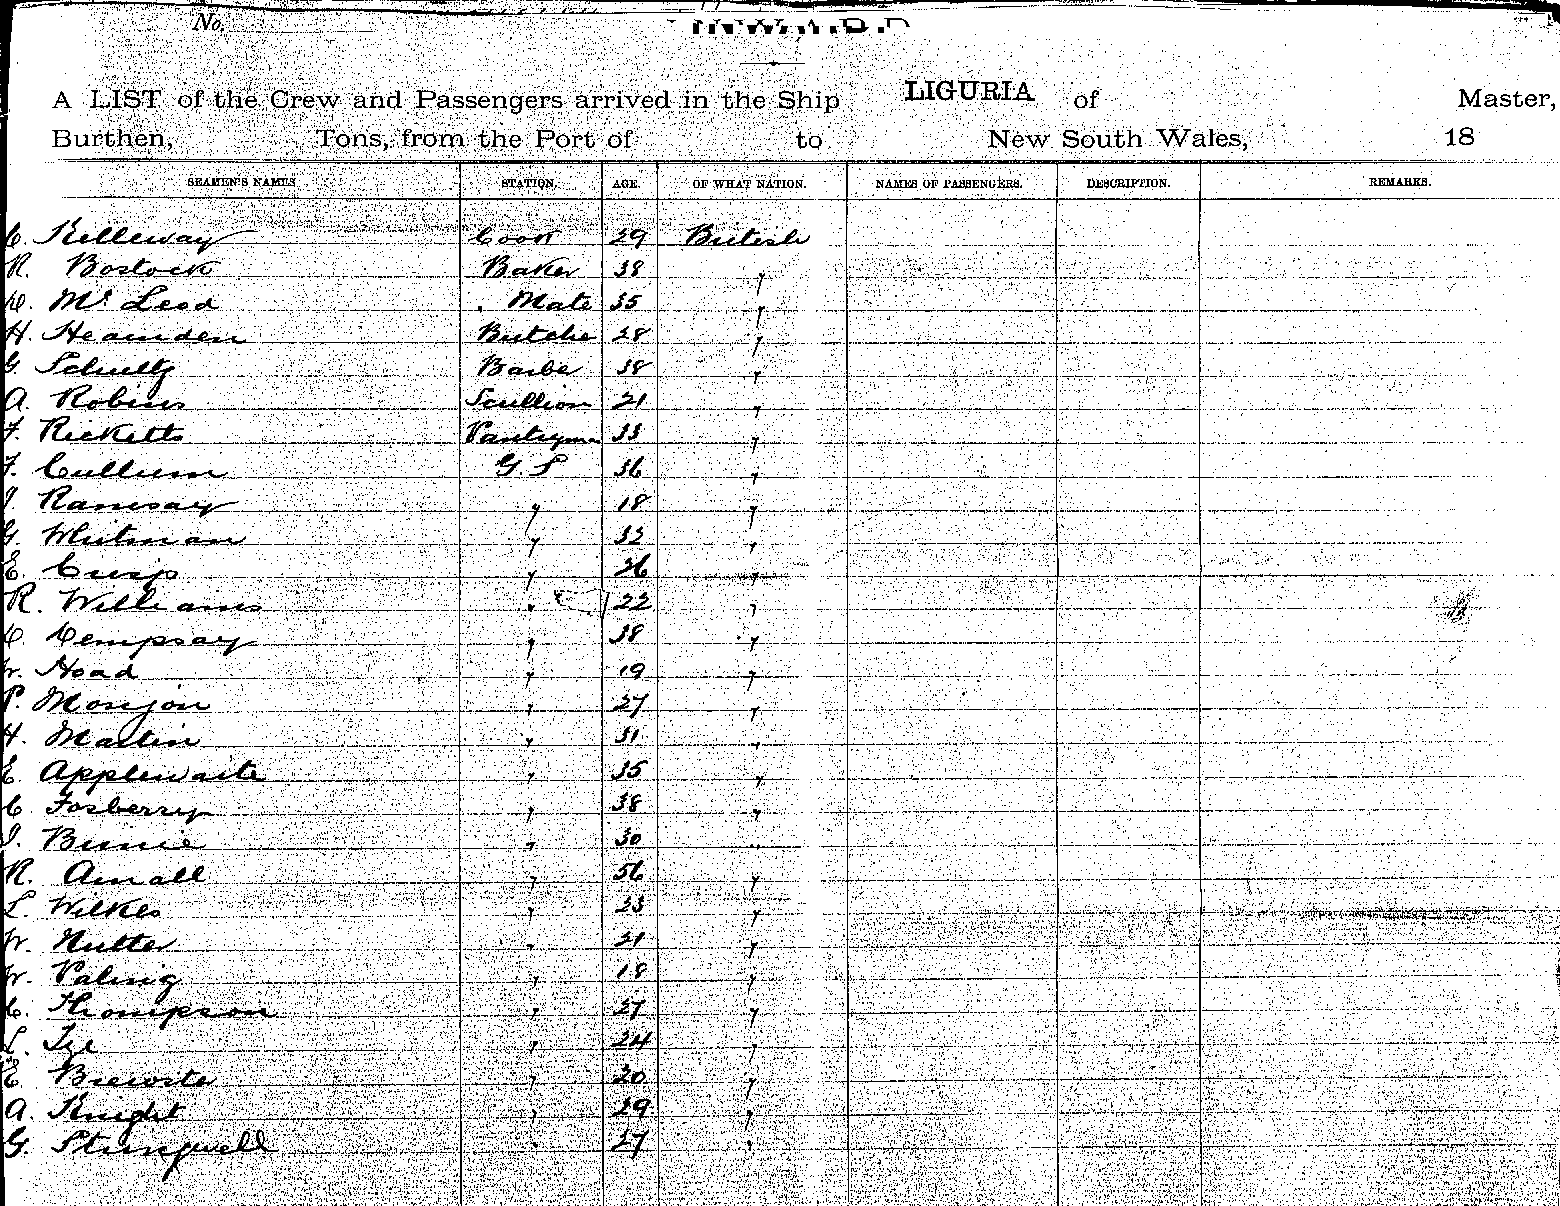 No.
INWARD.
A LIST of the Crew and Passengers arrived in the Ship LIGURIA of Master,
Burthen, Tons, from the Port of to New South Wales, 18
SEAMEN'S NAMES STATION. AGE. OF WHAT NATION. NAMES OF PASSENGERS. DESCRIPTION. REMARKS.
C. Kelleway Cook 29 British
R. Bostock Baker 38 "
D. Mc Leod " Mate 35 "
H. Heamden Butche 28 "
G. Schultz Barbe 38 "
A. Robins Scullion 21 "
F. Ricketts Pantryman 33 "
F. Cullum G. S 36 "
J. Ramsay " 18 "
G. Whitman " 32 "
E. Crisp " 26 "
R. Williams " 22 "
C. Dempsay " 38 "
W. Hoad " 19 "
P. Monjon " 27 "
H. Martin " 31 "
E. Applewaite " 35 "
C. Fosberry " 38 "
J. Birnie " 30 "
R. Arnall " 56 "
L. Wilkes " 23 "
W. Nutter " 21 "
W. Paling " 18 "
C. Thompson " 27 "
L. Tye " 24 "
E. Brewste " 20 "
A. Knight " 29 "
G. " 27 "